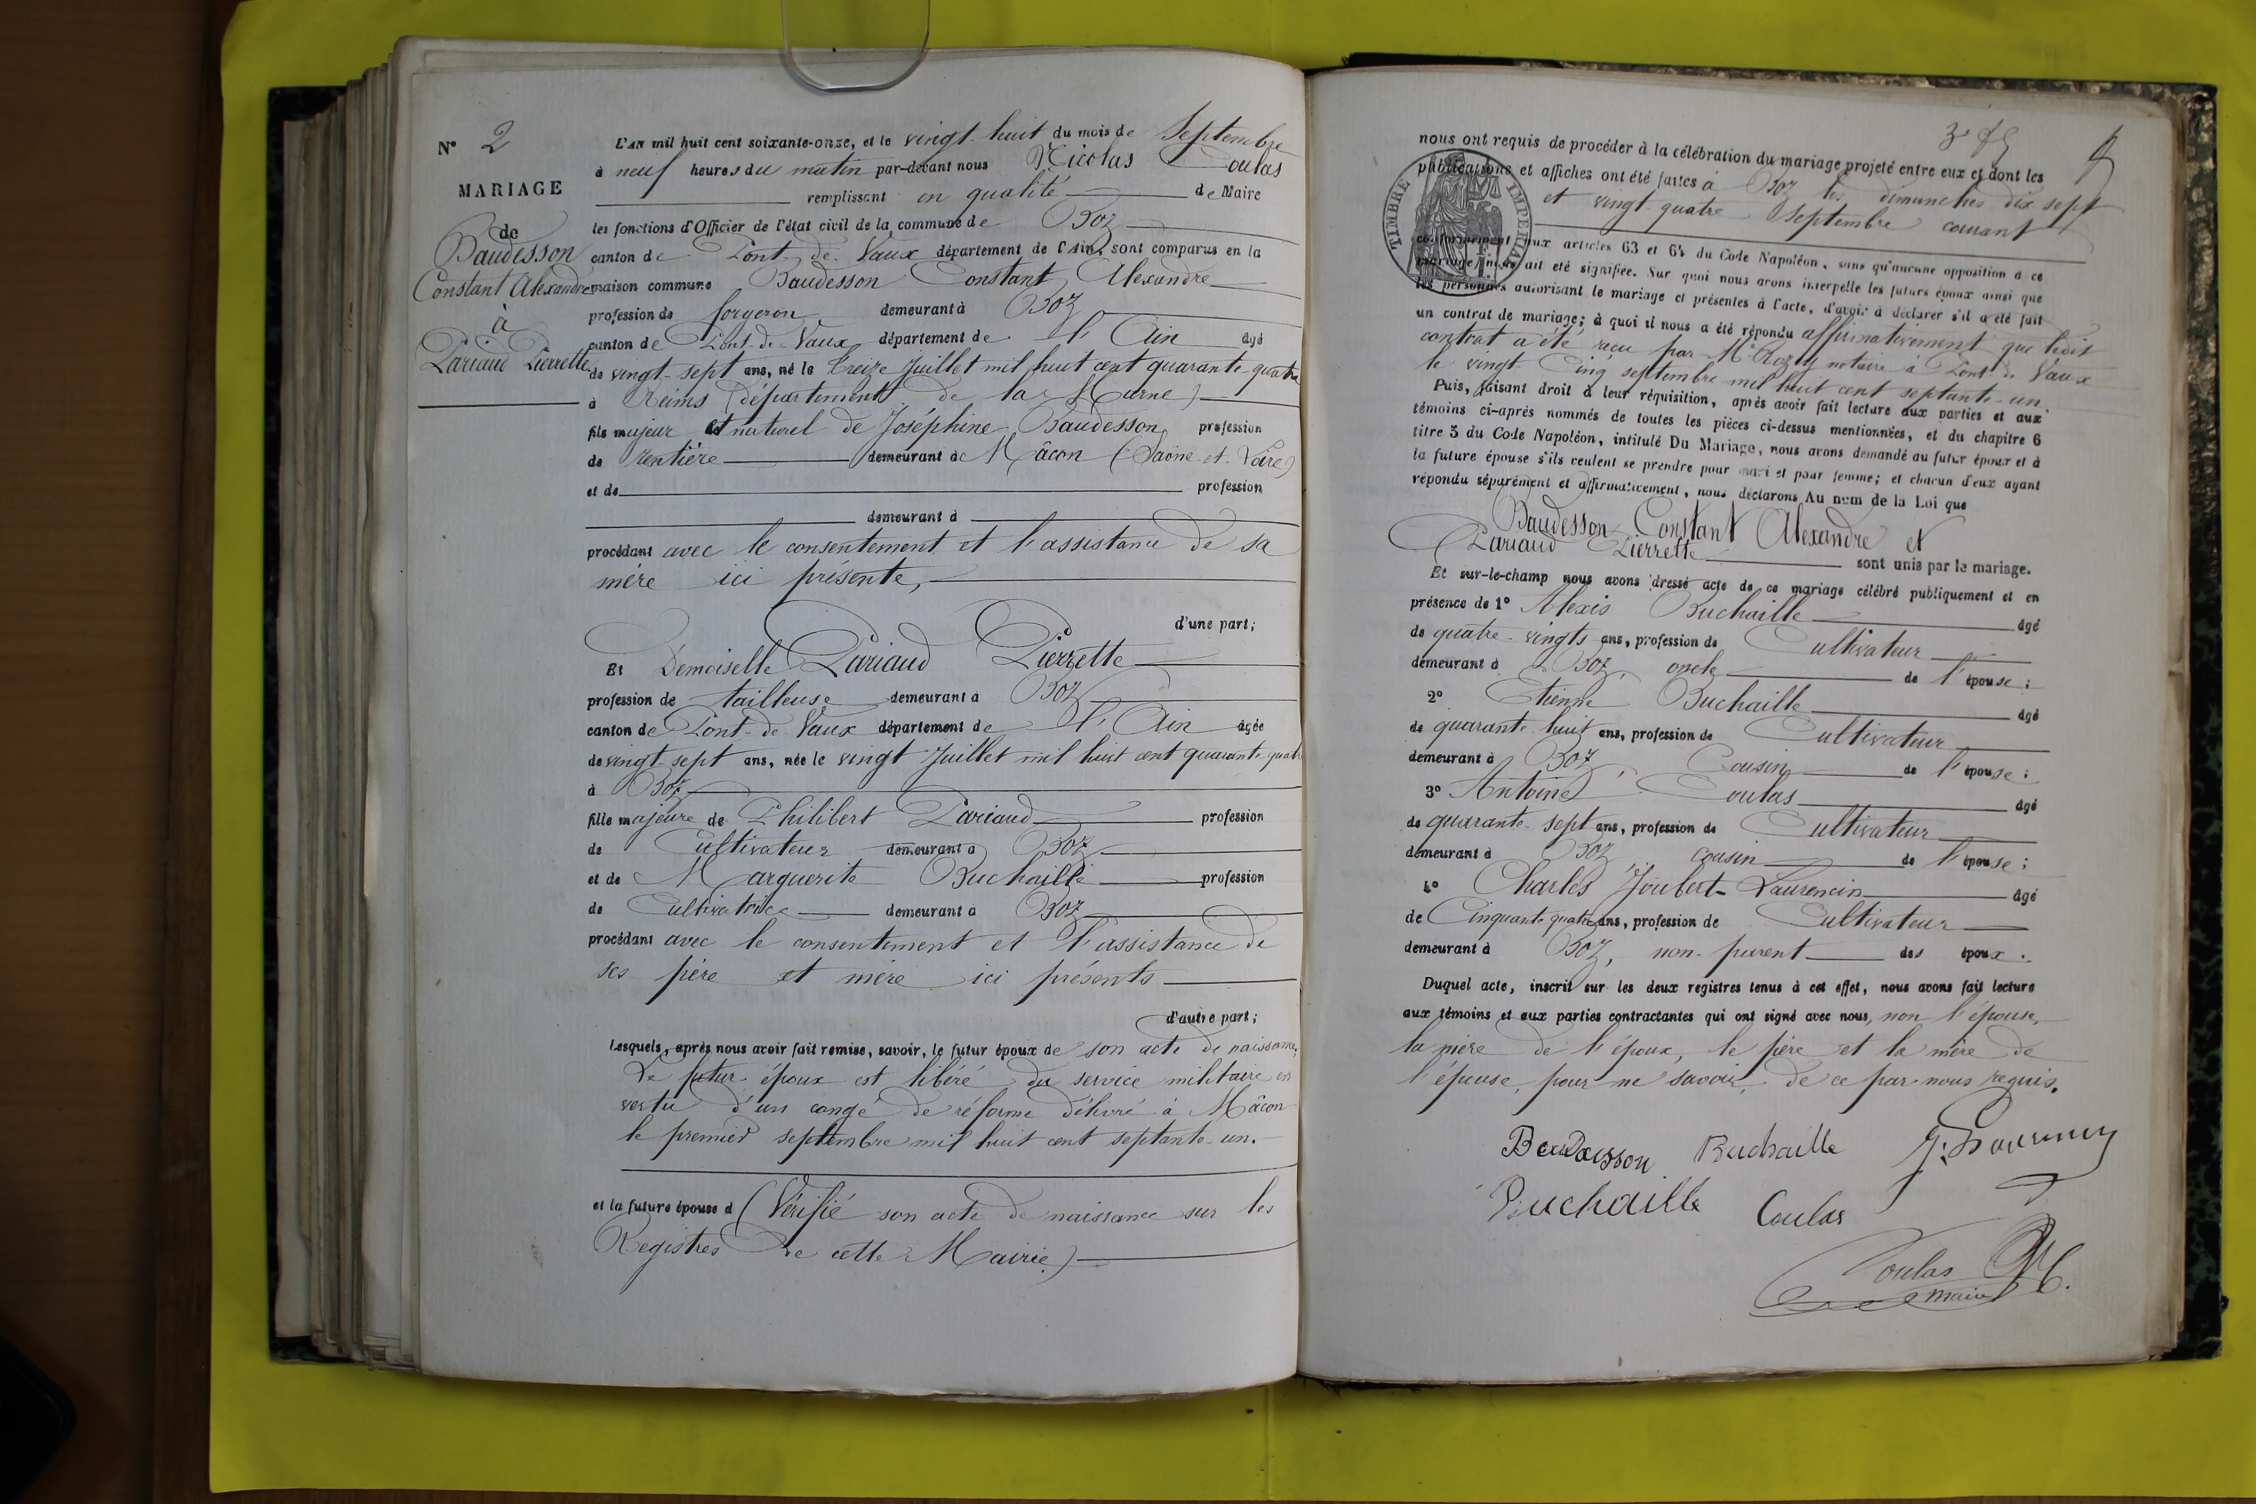 N° 2
MARIAGE
de
Baudesson
Constant Alexandre
à
Pariaud Pierrette
L'an mil huit cent soixante-onze, et le vingt-huit du mois de Septembre
à neuf heures du matin par-devant nous Nicolas Coulas
remplissant en qualité de Maire
les fonctions d'Officier de l'état civil de la commune de Boz
canton de Pont-de-Vaux département de l'Ain, sont comparus en la
maison commune Baudesson Constant Alexandre
profession de forgeron demeurant à Boz
canton de Pont-de-Vaux département de l'Ain âgé
de vingt-sept ans, né le treize Juillet mil huit cent quarante-quatre
à Reims (département de la Marne)
fils majeur et naturel de Joséphine Baudesson profession
de rentière demeurant à Mâcon (Saône-et-Loire)
et de profession
demeurant à
procédant avec le consentement et l'assistance de sa
mère ici présente,
d'une part;
Et Demoiselle Pariaud Pierrette
profession de tailleuse demeurant à Boz
canton de Pont-de-Vaux département de l'Ain âgée
de vingt-sept ans, née le vingt Juillet mil huit cent quarante-quatre
à Boz
fille majeure de Philibert Pariaud profession
de Cultivateur demeurant à Boz
et de Marguerite Buchaille profession
de Cultivatrice demeurant à Boz
procédant avec le consentement et l'assistance de
ses père et mère ici présents
d'autre part;
Lesquels, après nous avoir fait remise, savoir, le futur époux de son acte de naissance,
Le futur époux est libéré du service militaire en
vertu d'un congé de réforme délivré à Mâcon
le premier septembre mil huit cent septante-un.
et la future épouse d (Vérifié son acte de naissance sur les
Registres de cette Mairie)
nous ont requis de procéder à la célébration du mariage projeté entre eux et dont les
publications et affiches ont été faites à Boz les dimanches dix-sept
et vingt-quatre Septembre courant
TIMBRE IMPÉRIAL
conformément aux articles 63 et 64 du Code Napoléon, sans qu'aucune opposition à ce
mariage nous ait été signifiée. Sur quoi nous avons interpellé les futurs époux ainsi que
les personnes autorisant le mariage et présentes à l'acte, d'avoir à déclarer s'il a été fait
un contrat de mariage; à quoi il nous a été répondu affirmativement que ledit
contrat a été reçu par Me notaire à Pont-de-Vaux
le vingt-Cinq septembre mil huit cent septante-un.
Puis, faisant droit à leur réquisition, après avoir fait lecture aux parties et aux
témoins ci-après nommés de toutes les pièces ci-dessus mentionnées, et du chapitre 6
titre 5 du Code Napoléon, intitulé Du Mariage, nous avons demandé au futur époux et à
la future épouse s'ils veulent se prendre pour mari et pour femme; et chacun d'eux ayant
répondu séparément et affirmativement, nous déclarons Au nom de la Loi que
Baudesson Constant Alexandre et
Pariaud Pierrette sont unis par le mariage.
Et sur-le-champ nous avons dressé acte de ce mariage célébré publiquement et en
présence de 1° Alexis Buchaille âgé
de quatre-vingts ans, profession de Cultivateur
demeurant à Boz, oncle de l'épouse;
2° Etienne Buchaille âgé
de quarante-huit ans, profession de Cultivateur
demeurant à Boz, Cousin de l'épouse;
3° Antoine Coulas âgé
de quarante-sept ans, profession de Cultivateur
demeurant à Boz, cousin de l'épouse;
4° Charles Joubert-Laurencin âgé
de Cinquante-quatre ans, profession de Cultivateur
demeurant à Boz, non-parent des époux.
Duquel acte, inscrit sur les deux registres tenus à cet effet, nous avons fait lecture
aux témoins et aux parties contractantes qui ont signé avec nous, non l'épouse,
la mère de l'époux, le père et la mère de
l'épouse, pour ne savoir, de ce par nous requis.
Baudesson Buchaille
Buchaille Coulas
Coulas
maire